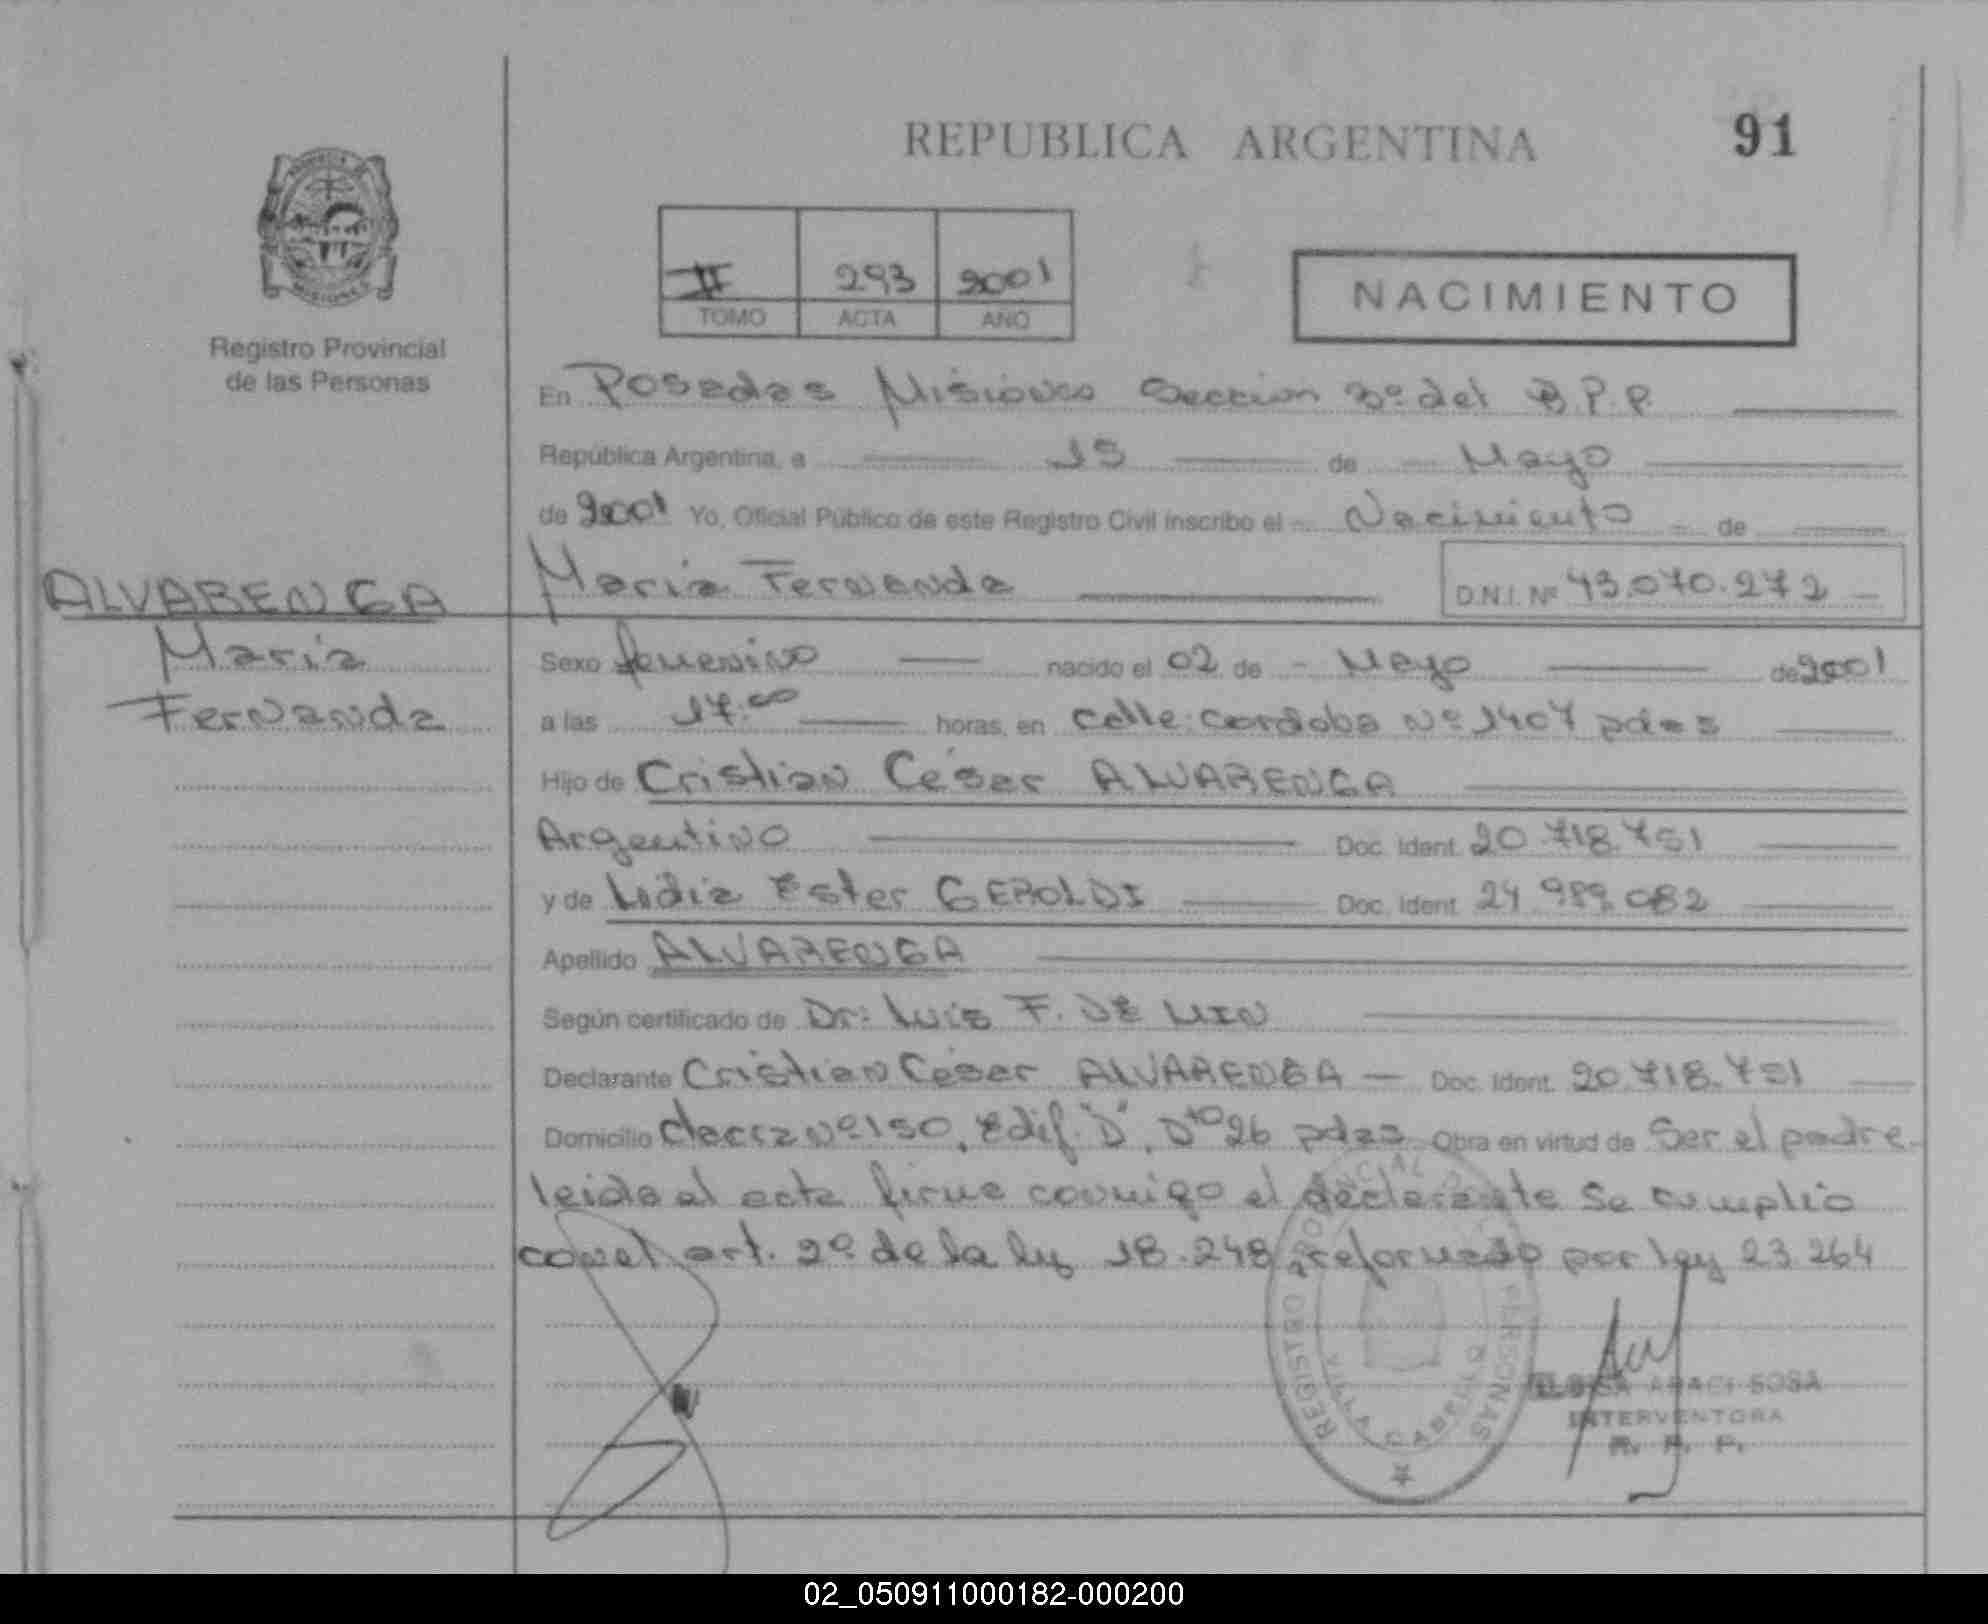 REPUBLICA ARGENTINA
91
PROVINCIA DE
MISIONES
Registro Provincial
de las Personas
II 293 2001
TOMO ACTA AÑO
NACIMIENTO
En Posadas Misiones Seccion 3º del R.P.P.
República Argentina, a 15 de Mayo
de 2001 Yo, Oficial Público de este Registro Civil inscribo el Nacimiento de
ALVARENGA
Maria Fernanda
D.N.I. Nº 43.070.272
Maria
Fernanda
Sexo femenino nacido el 02 de Mayo de 2001
a las 17:00 horas, en calle: cordoba Nº 1407 pdas
Hijo de Cristian César ALVARENGA
Argentino Doc. Ident. 20.718.751
y de Lidia Ester GEROLDI Doc. Ident. 24.989.082
Apellido ALVARENGA
Según certificado de Dr: Luis F. DE MIN
Declarante Cristian César ALVARENGA Doc. Ident. 20.718.751
Domicilio Nº 150, Edif. "D", Dto 26 pdas Obra en virtud de Ser el padre
leida el acta firma conmigo el declarante Se cumplió
con el art. 2º de la ley 18.248, reformado por ley 23.264
REGISTRO PROVINCIAL DE LAS PERSONAS
VILLA CABELLO
ARACI SOSA
INTERVENTORA
R. P. P.
02_050911000182-000200